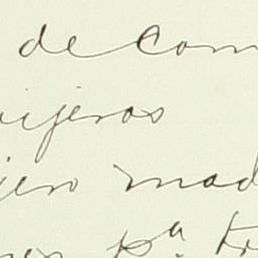 de Com
ijeros
jero mad
pª Tr